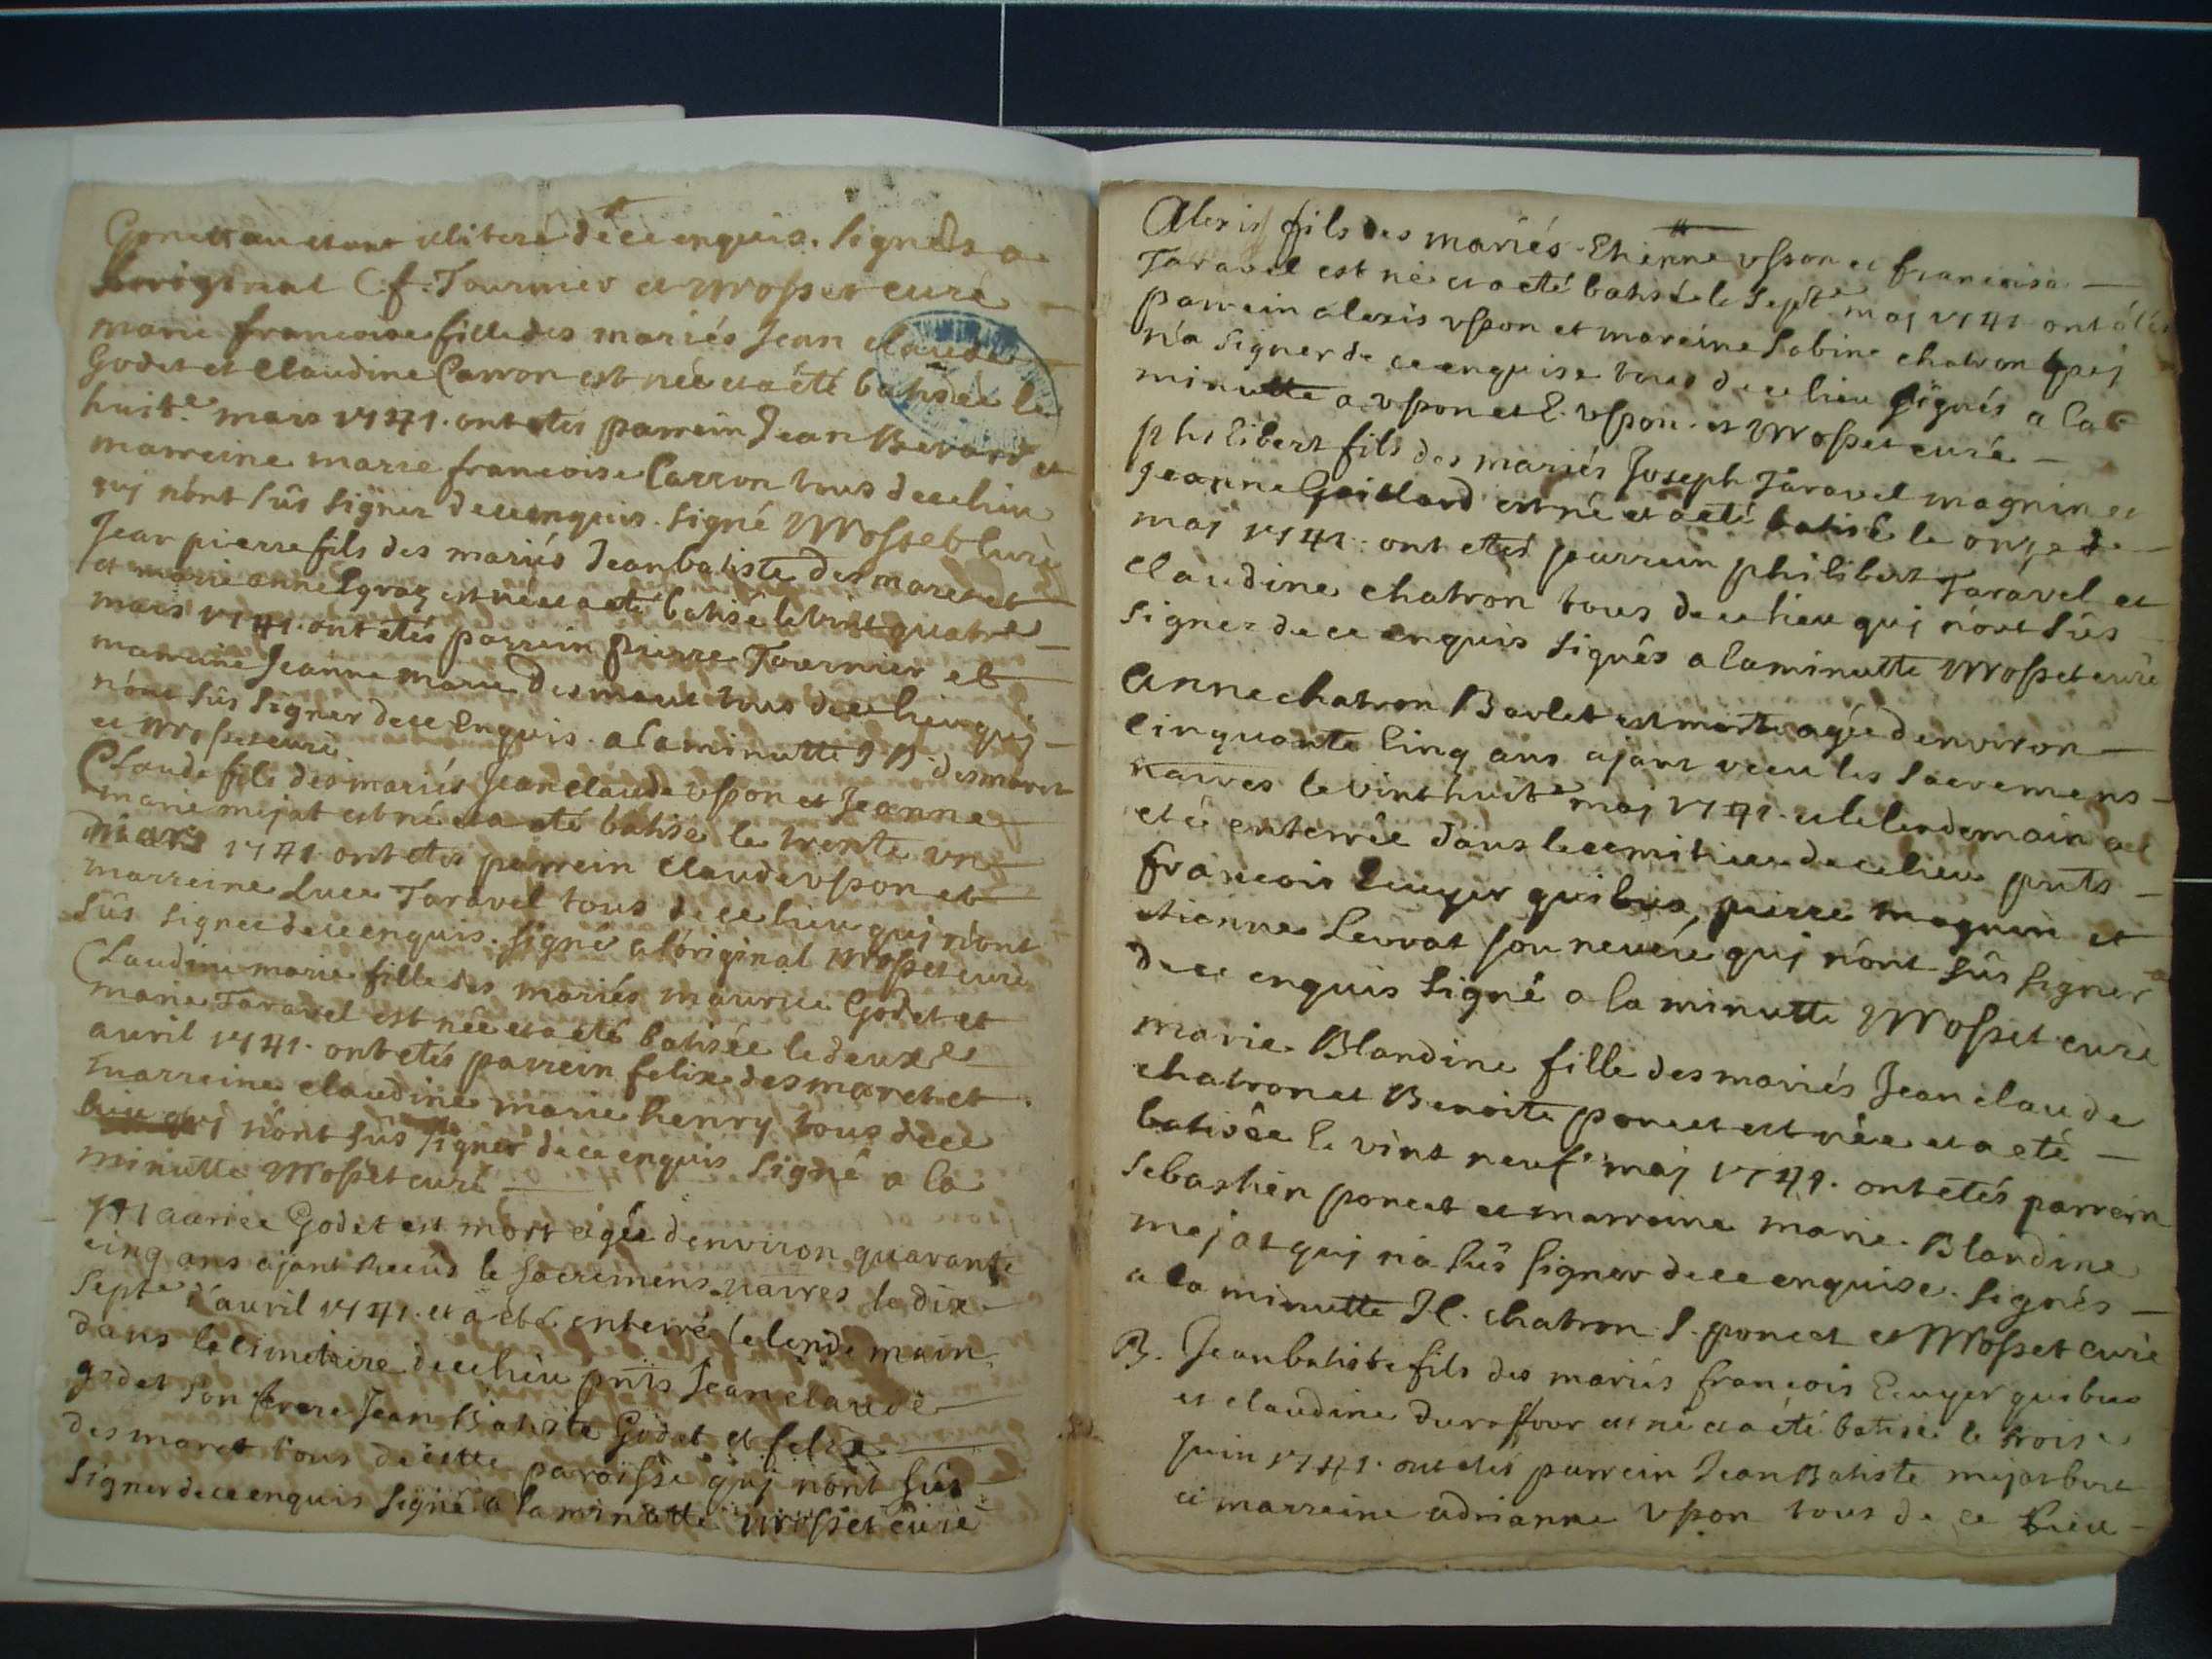 étant illiteré de ce enquis. Signés a
l'original C f. Tournier et Mosset curé
marie francoise fille des mariés Jean claude
Godet et Claudine Carron est née et a été batisée le
huit.e mars 1741. ont etés parrein Jean Bevard et
marreine marie francoise Carron tous de ce lieu
quj n'ont sûs signer de ce enquis. signé Mosset Curé
Jean pierre fils des mariés Jean batiste desmaret et
et marie anne est né et a eté batisé le vint quatre
mars 1741. ont etés parrein pierre Tournier et
marreine Jeanne marie desmaret tous de ce lieu quj
n'ont sûs signer de ce Enquis. a la minutte J B. desmaret
et Mosset curé
Claude fils des mariés Jean claude vspon et Jeanne
marie mejat est né et a eté batisé le trente un
mars 1741 ont etés parrein claude vspon et
marreine Luce Taravel tous de ce lieu quj n'ont
sûs signer de ce enquis. signé a l'original Mosset curé
Claudine marie fille des mariés maurice Godet et
marie Taravel est née et a été batisée le deux.e
auril 1741. ont etés parrein felix desmaret et
marreine claudine marie henry tous de ce
lieu quj n'ont sûs signer de ce enquis signé a la
minutte Mosset curé
Maurice Godet est mort agée d'environ quarante
cinq ans ajant Recûs le sacremens naires le dix
sept.e d'auril 1741. et a eté enterré le lendemain
dans le cimetiere de ce lieu pnts Jean claude
godet son frere Jean Batiste Godet et felix
desmaret tous de cette paroisse quj n'ont sûs
signer de ce enquis signé a la minutte Mosset curé
Alexis fils des mariés Etienne vspon et francoise
Taravel est né et a eté batisé le sept.e maj 1741 ont etés
parrein alexis vspon et mareine sabine chatron quj
n'a signer de ce enquise tous de ce lieu signés a la
minutte a vspon et E. vspon. et Mosset curé
philibert fils des mariés Joseph Taravel magnin et
jeanne Gaillard est né et a eté batisé le onze de
maj 1741. ont etés parrein philibert Taravel et
claudine chatron tous de ce lieu quj n'ont sûs
signer de ce enquis signés a la minutte Mosset curé
Anne chatron Barlet est morte agée d'environ
cinquante cinq ans ajant receu les sacremens
naires le vint huit.e maj 1741. et le lendemain a
etée enterrée dans le cemitiere de ce lieu pnts
francois Ecuyer quibus, pierre magnin et
etienne Levrat son neveu quj n'ont sûs signer
de ce enquis signé a la minutte Mosset curé
marie Blandine fille des mariés Jean claude
chatron et Benoite poncet est née et a eté
batisée le vint neuf.e maj 1741. ont etés parrein
sebastien poncet et marreine marie. Blandine
mejat quj n'a sûs signer de ce enquise. signés
a la minutte JC. chatron S. poncet et Mosset curé
B. Jean batiste fils des mariés francois Ecuyer quibus
et claudine duraffour est né et a été batisé le trois.e
Juin 1741. ont etés parrein Jean Batiste mejat
et marreine adrianne vspon tous de ce lieu